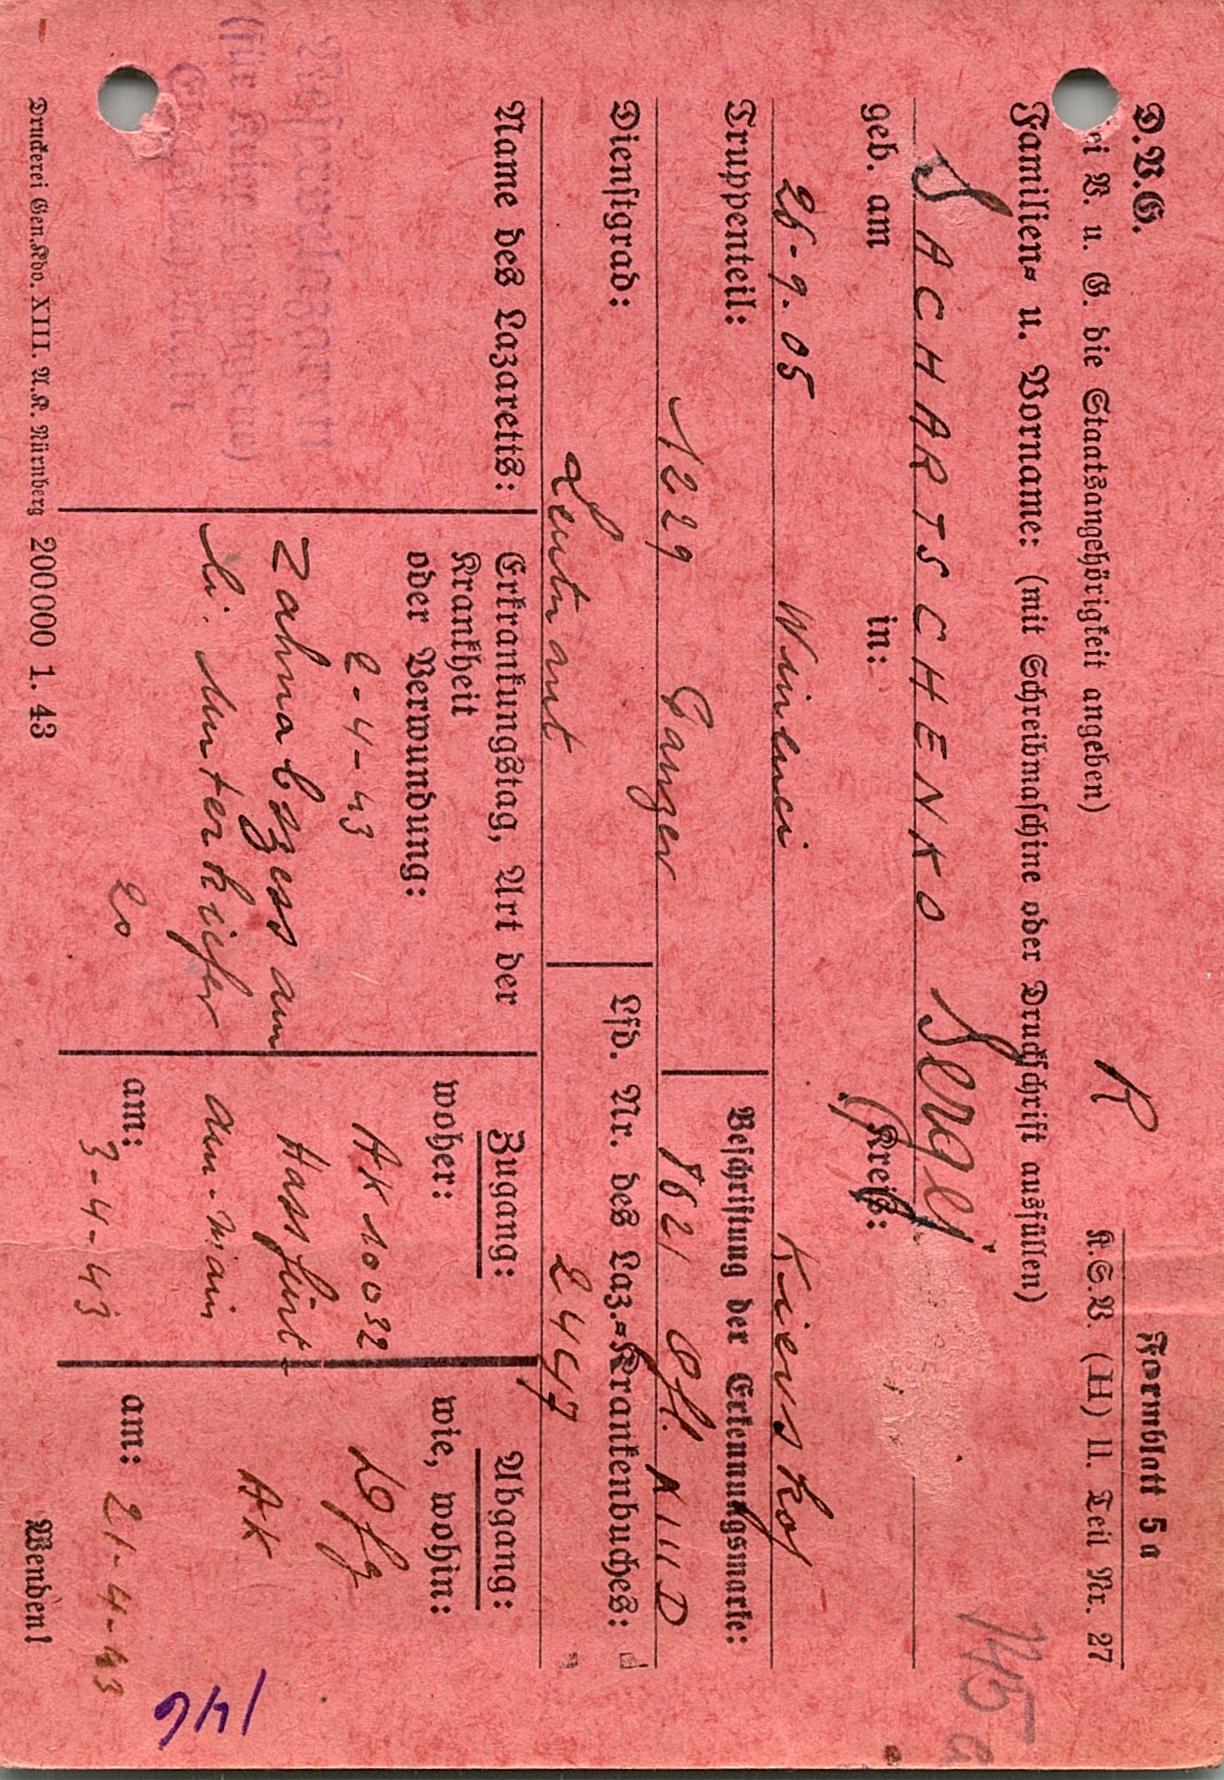 D.V.G.
R
Formblatt 5a
K.S.V. (H) II. Teil Nr. 27
ei V. u. G. die Staatsangehörigkeit angeben)
Familien= u. Vorname: (mit Schreibmaschine oder Druckschrift ausfüllen)
145 a
SACHARTSCHENKO Sergej
geb. am in: (Kreis:
25-9.05 Winenci Kiewskoj
Truppenteil: Beschriftung der Erkennungsmarke:
1229 Panzer 1621 Ofl. XIII D
Dienstgrad: Lfd. Nr. des Laz.=Krankenbuches:
Leutnant 2447
Name des Lazaretts:
Erkrankungstag, Art der
Krankheit
oder Verwundung:
2-4-43
Zahnabszess am
li. Unterkiefer
20
Zugang:
woher:
AK 10032
Hassfurt
am-Main
am: 3-4-43
Abgang:
wie, wohin:
Dfg
AK
am: 21-4-43
Reservelazarett
(für Kriegsgefangene)
146
Druckerei Gen.Kdo. XIII. A.K. Nürnberg 200000 1. 43
Wenden!